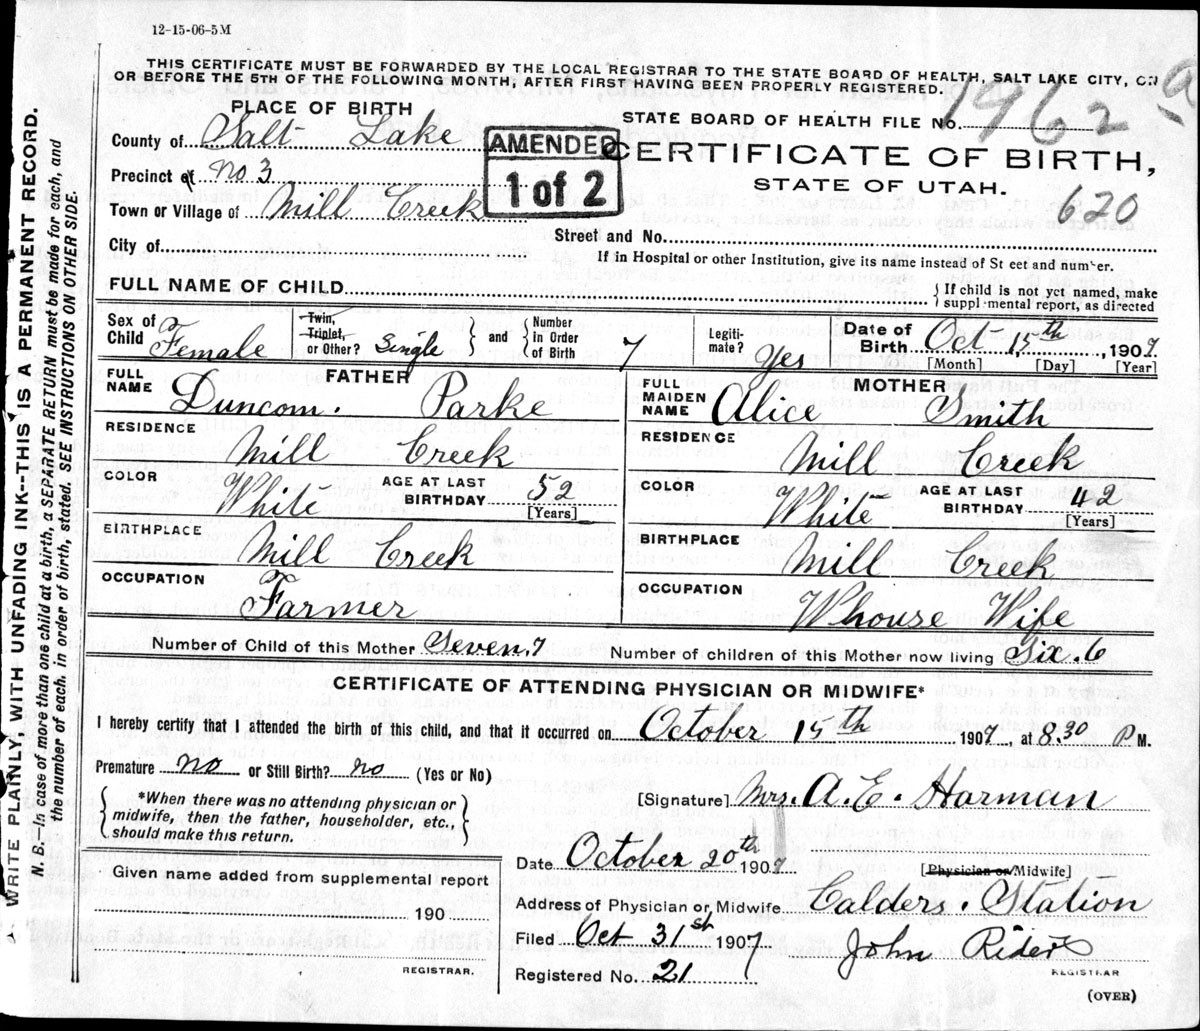 12-15-06-5M
THIS CERTIFICATE MUST BE FORWARDED BY THE LOCAL REGISTRAR TO THE STATE BOARD OF HEALTH, SALT LAKE CITY, ON
OR BEFORE THE 5TH OF THE FOLLOWING MONTH, AFTER FIRST HAVING BEEN PROPERLY REGISTERED.
PLACE OF BIRTH
STATE BOARD OF HEALTH FILE No. 1962 a
County of Salt Lake
AMENDED
1 of 2
CERTIFICATE OF BIRTH,
STATE OF UTAH.
Precinct of No 3
620
Town or Village of Mill Creek
Street and No.
City of
If in Hospital or other Institution, give its name instead of St eet and number.
FULL NAME OF CHILD
If child is not yet named, make
suppl mental report, as directed
Sex of Child Female
Twin, Triplet, or Other? Single and Number in Order of Birth 7
Legitimate? Yes
Date of Birth Oct 15th, 1907
[Month] [Day] [Year]
FATHER
FULL NAME Duncom. Parke
RESIDENCE
Mill Creek
COLOR White AGE AT LAST BIRTHDAY 52
[Years]
BIRTHPLACE
Mill Creek
OCCUPATION
Farmer
MOTHER
FULL MAIDEN NAME Alice Smith
RESIDENCE
Mill Creek
COLOR White AGE AT LAST BIRTHDAY 42
[Years]
BIRTHPLACE
Mill Creek
OCCUPATION
Whouse Wife
Number of Child of this Mother Seven. 7
Number of children of this Mother now living Six. 6
CERTIFICATE OF ATTENDING PHYSICIAN OR MIDWIFE*
I hereby certify that I attended the birth of this child, and that it occurred on October 15th 1907, at 8.30 P M.
Premature no or Still Birth? no (Yes or No)
*When there was no attending physician or
midwife, then the father, householder, etc.,
should make this return.
[Signature] Mrs. A. E. Harman
Date October 20th 1907
[Physician or Midwife]
Address of Physician or Midwife Calders. Station
Filed Oct 31st 1907
John Rider
REGISTRAR
Registered No. 21
(OVER)
Given name added from supplemental report
190
REGISTRAR.
WRITE PLAINLY, WITH UNFADING INK--THIS IS A PERMANENT RECORD.
N. B.—In case of more than one child at a birth, a SEPARATE RETURN must be made for each, and
the number of each, in order of birth, stated. SEE INSTRUCTIONS ON OTHER SIDE.